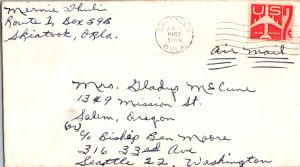 Mernie Thulin
Route 1, Box 59B
Skiatook, Okla.
1962
OKLA.
U.S.
7¢
Air Mail
Mrs. Gladys McCune
1349 Mission St.
Salem, Oregon
or)
c/o Bishop Ben Moore
316 33rd Ave
Seattle 22, Washington